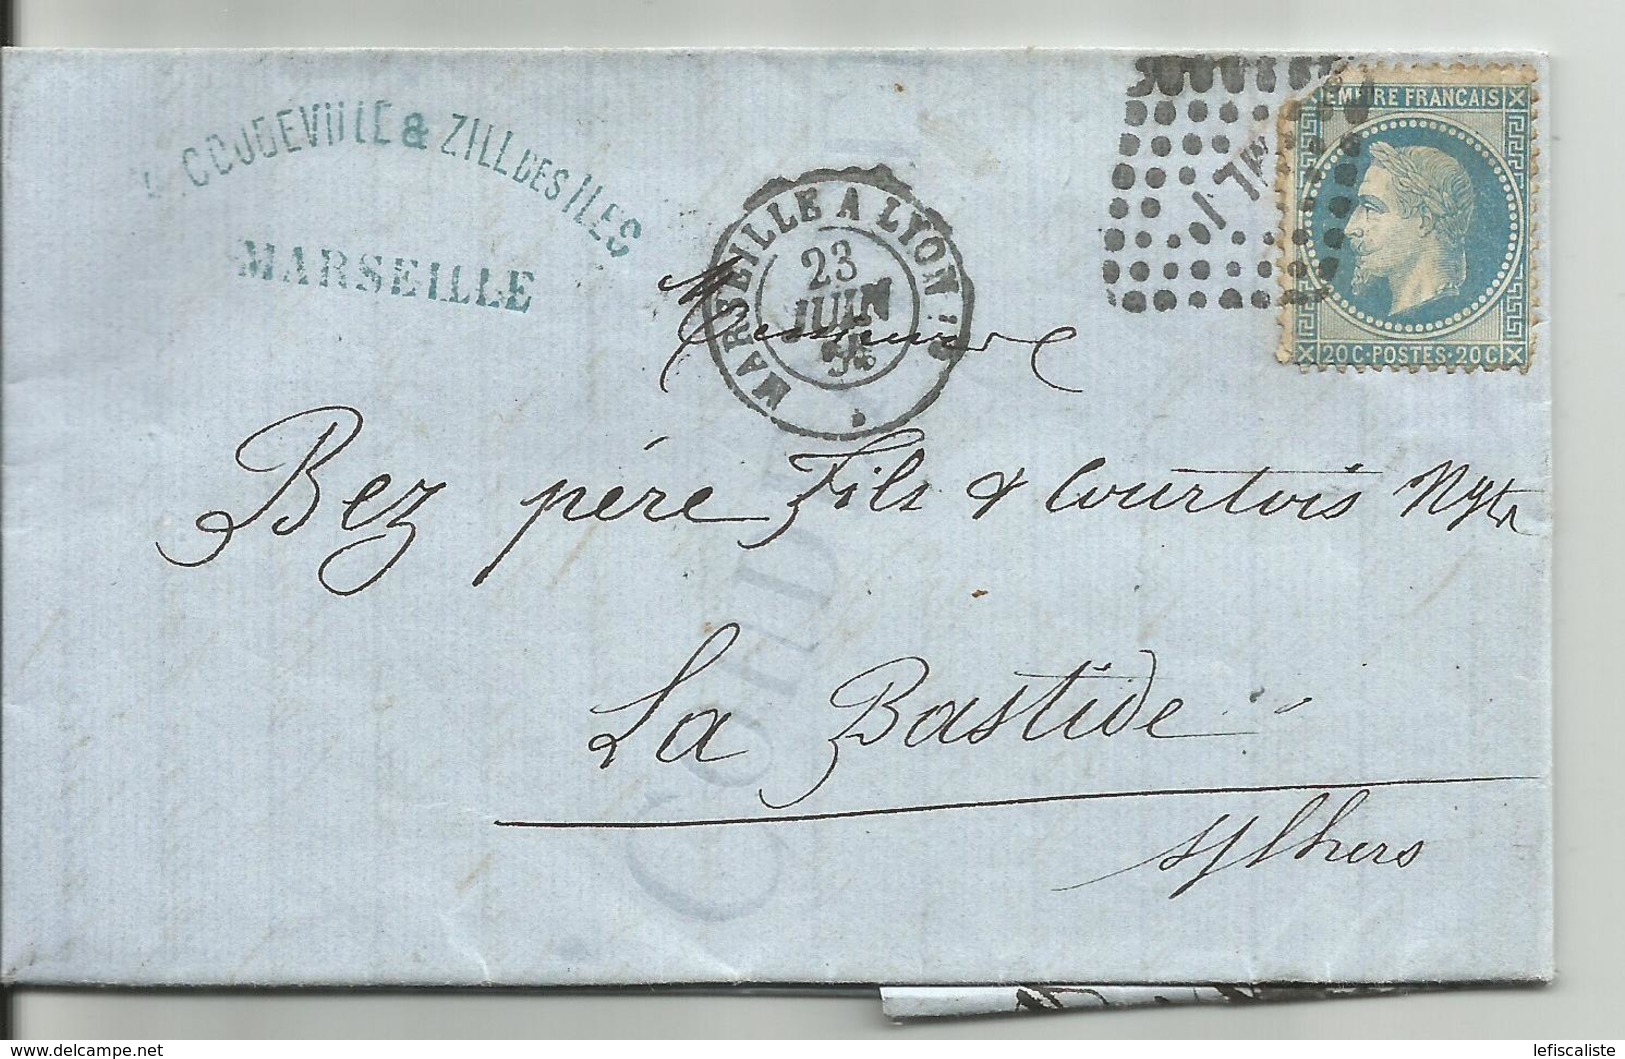 COUDEVILLE & ZILL DES ILES
MARSEILLE
MARSEILLE A LYON
23
JUIN
EMPIRE FRANCAIS
20C·POSTES·20C
Messieurs
Bez père Fils & Courtois Ngts
La Bastide
s/lhers
delcampe.net
lefiscaliste